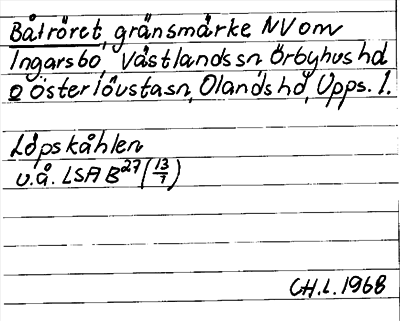 Båtröret, gränsmärke NV om
Ingarsbo, Västlands sn Örbyhus hd
o Österlövsta sn, Olands hd, Upps. l.
Löpskåhlen
u.å. LSA B27 (13/7)
CH.L. 1968